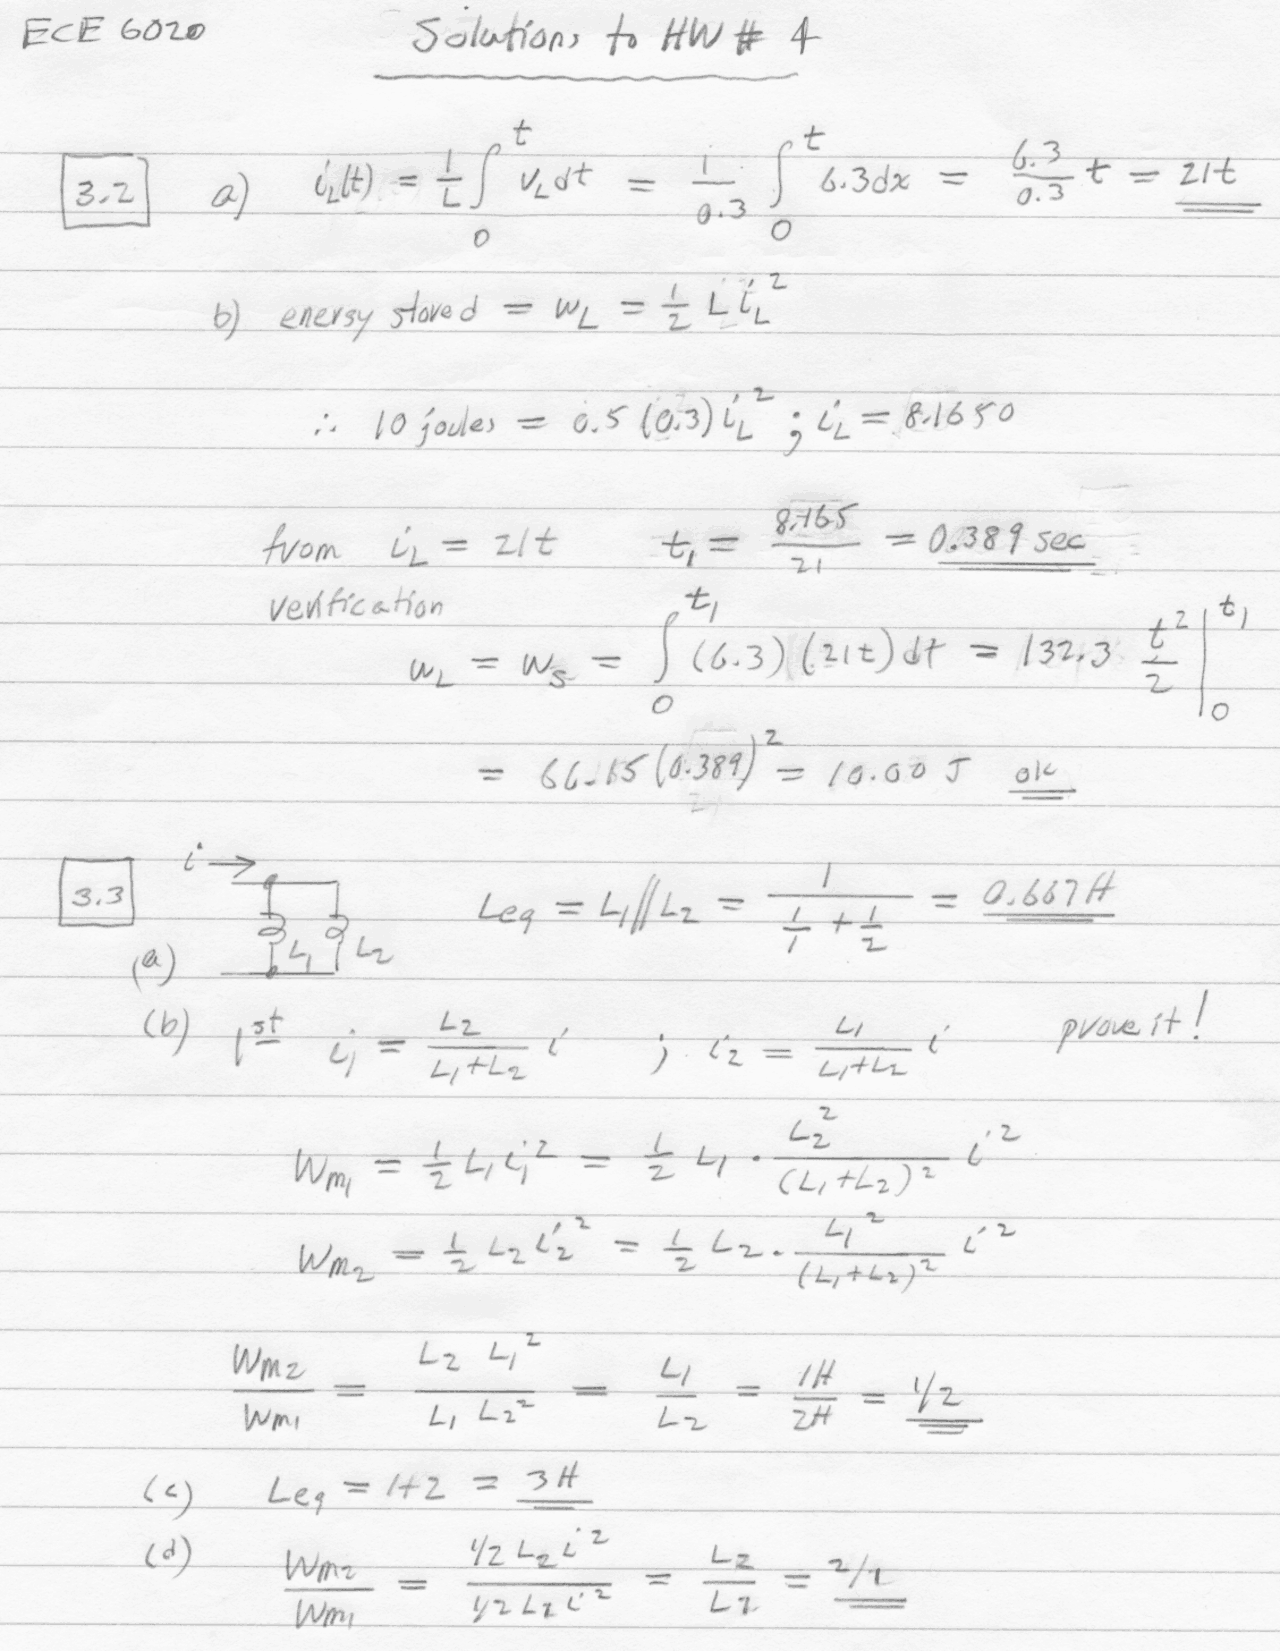 ECE 6020
Solutions to HW # 4
3.2 a) i_L(t) = 1/L ∫_0^t v_L dt = 1/0.3 ∫_0^t 6.3dx = 6.3/0.3 t = 21t
b) energy stored = w_L = 1/2 L i_L^2
∴ 10 joules = 0.5 (0.3) i_L^2 ; i_L = 8.1650
from i_L = 21t t_1 = 8.165/21 = 0.389 sec
verification
w_L = w_s = ∫_0^{t_1} (6.3)(21t) dt = 132.3 t^2/2 |_0^{t_1}
= 66.15 (0.389)^2 = 10.00 J ok
3.3 i →
(a) L_1 L_2 Leq = L_1 // L_2 = 1/(1/1 + 1/2) = 0.667 H
(b) 1st i_1 = L_2/(L_1+L_2) i ; i_2 = L_1/(L_1+L_2) i prove it!
W_m1 = 1/2 L_1 i_1^2 = 1/2 L_1 · L_2^2/(L_1+L_2)^2 i^2
W_m2 = 1/2 L_2 i_2^2 = 1/2 L_2 · L_1^2/(L_1+L_2)^2 i^2
W_m2/W_m1 = L_2 L_1^2/L_1 L_2^2 = L_1/L_2 = 1H/2H = 1/2
(c) Leq = 1+2 = 3H
(d) W_m2/W_m1 = 1/2 L_2 i^2 / 1/2 L_1 i^2 = L_2/L_1 = 2/1